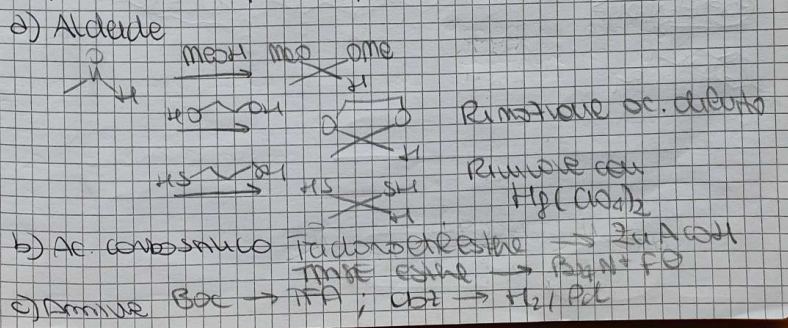 a) Aldeide
O
H
MeOH MeO OMe
H
HO OH
O O
H
Rimozione ac. diluito
HS OH
HS SH
H
Rimuove con
Hg(ClO4)2
b) Ac. carbossilico → Zn AcOH
TMSE estere → Bu4N+ F⊖
c) Ammine BOC → TFA ; Cbz → H2/Pd